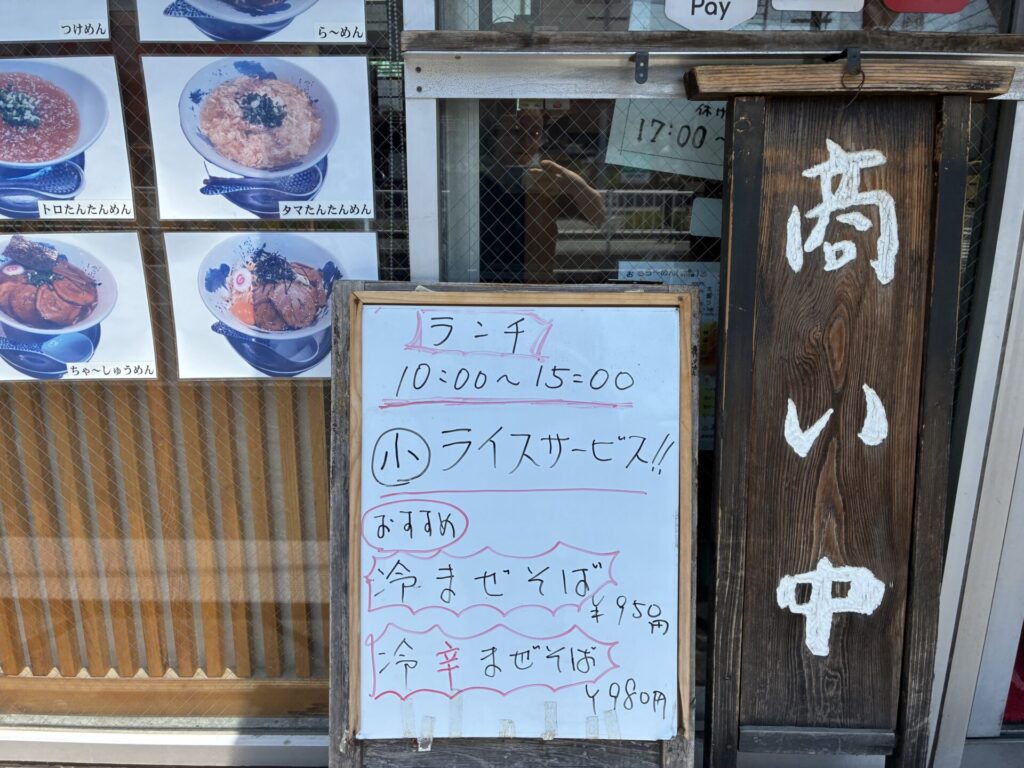 つけめん
ら～めん
トロたんたんめん
タマたんたんめん
ちゃ～しゅうめん
Pay
17:00～
ランチ
10:00～15:00
小 ライスサービス!!
おすすめ
冷まぜそば
¥950円
冷辛まぜそば
¥980円
商い中